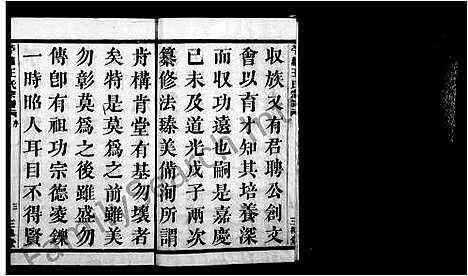 收族又有君聘公創文
會以育才知其培養深
而收功遠也嗣是嘉慶
已未及道光戊子兩次
纂修法臻美備洵所謂
肯構肯堂有基勿壞者
矣特是莫為之前雖美
勿彰莫為之後雖盛勿
傳卽有祖功宗德凌鑠
一時昭人耳目不得賢
序
FamilySearch Int